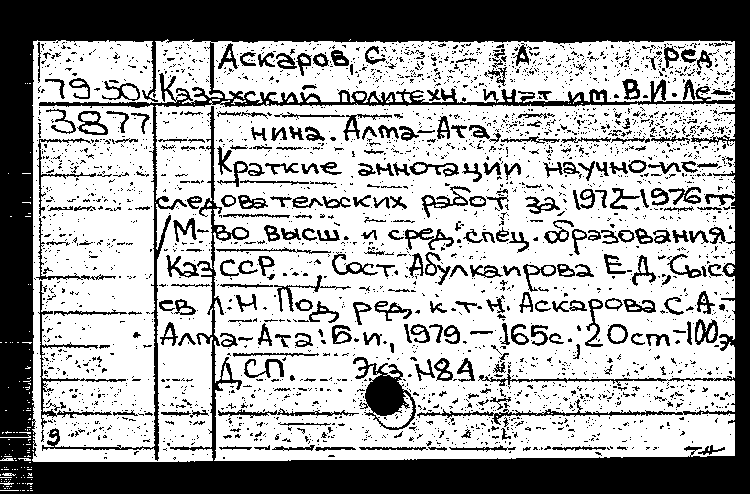 Аскаров, С А , ред
79-50к Казахский политехн. инст им. В.И. Ле-
3877 нина. Алма-Ата.
Краткие аннотации научно-ис-
следовательских работ за 1972-1976 гг.
/М-во высш. и сред. спец. образования
Каз ССР, ... ; Сост. Абулкаирова Е.Д., Сысо
ев Л.Н. Под ред. к.т.н. Аскарова С.А. -
Алма-Ата: Б.и., 1979. - 165с.; 20 см. - 100 э
ДСП. Экз. N84.
9